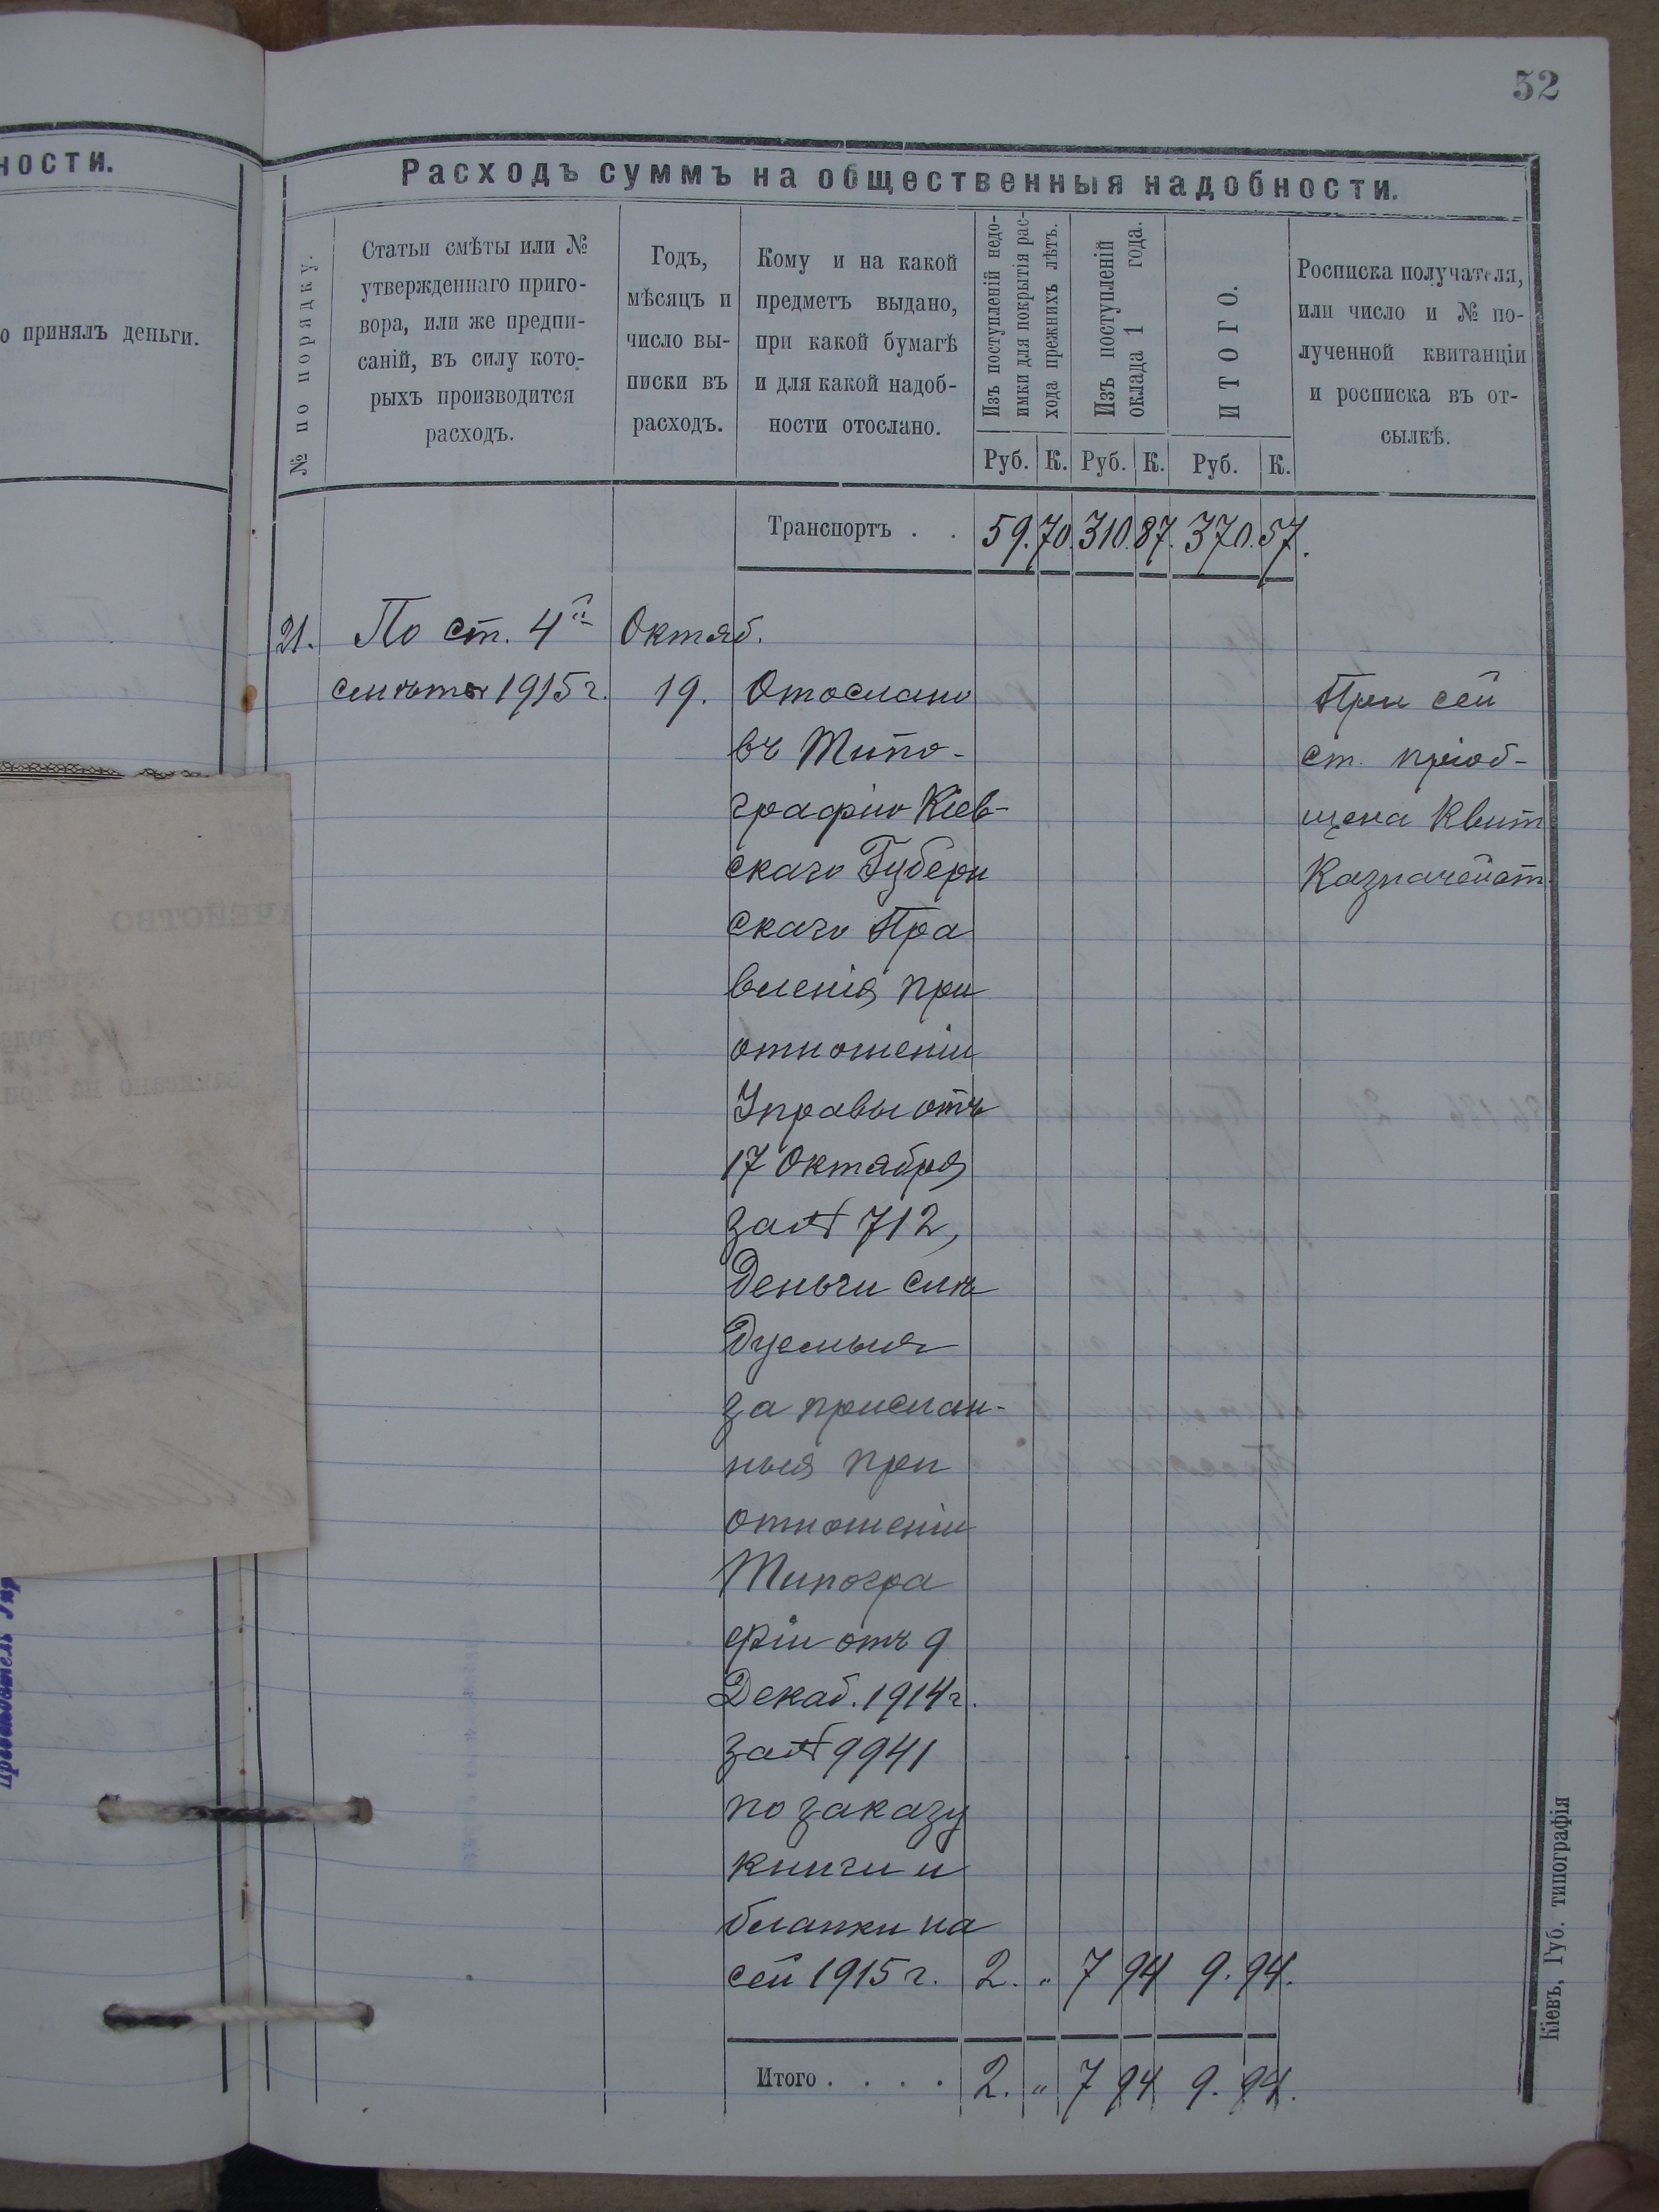 52
ности.
о принялъ деньги.
Расходъ суммъ на общественныя надобности.
№ по порядку.
Статьи смѣты или №
утвержденнаго приго-
вора, или же предпи-
саній, въ силу кото-
рыхъ производится
расходъ.
Годъ,
мѣсяцъ и
число вы-
писки въ
расходъ.
Кому и на какой
предметъ выдано,
при какой бумагѣ
и для какой надоб-
ности отослано.
Изъ поступленій недо-
имки для покрытія рас-
хода прежнихъ лѣтъ.
Изъ поступленій
оклада 1 года.
ИТОГО.
Росписка получателя,
или число и № по-
лученной квитанціи
и росписка въ от-
сылкѣ.
Руб. К. Руб. К. Руб. К.
Транспортъ . . 59. 70. 310. 87. 370. 57.
21. По ст. 4й Октяб.
смѣты 1915 г. 19. Отослано При сей
въ Типо- ст. пріоб-
графію Кіев- щена Квит
скаго Губерн Казначейст.
скаго Пра
вленія при
отношеніи
Управы отъ
17 Октября
за № 712,
Деньги слѣ
дуемыя
за прислан-
ныя при
отношеніи
Типогра
фіи отъ 9
Декаб. 1914 г.
за № 9941
по заказу
книги и
бланки на
сей 1915 г. 2. " 7 94 9. 94.
Итого . . . . 2. " 7 94 9. 94.
Кіевъ, Губ. типографія